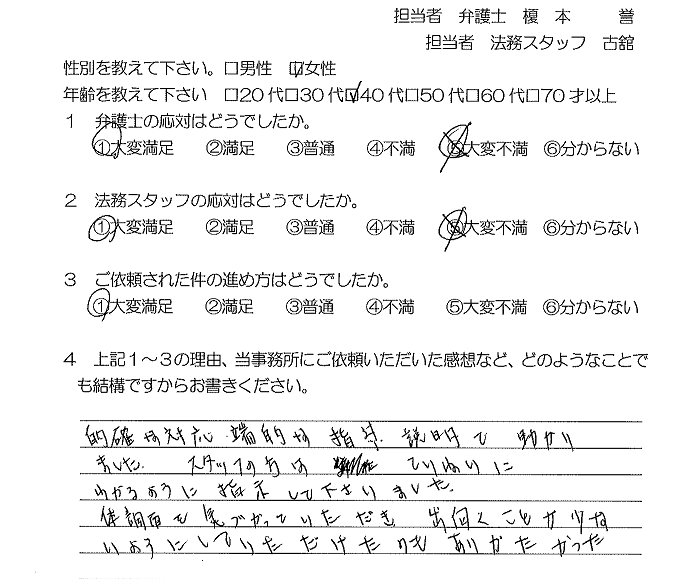 担当者　弁護士　榎　本　　　誉
担当者　法務スタッフ　古舘
性別を教えて下さい。□男性　☑女性
年齢を教えて下さい　□20代□30代☑40代□50代□60代□70才以上
１　弁護士の応対はどうでしたか。
①大変満足　②満足　③普通　④不満　⑤大変不満　⑥分からない
２　法務スタッフの応対はどうでしたか。
①大変満足　②満足　③普通　④不満　⑤大変不満　⑥分からない
３　ご依頼された件の進め方はどうでしたか。
①大変満足　②満足　③普通　④不満　⑤大変不満　⑥分からない
４　上記１～３の理由、当事務所にご依頼いただいた感想など、どのようなことで
も結構ですからお書きください。
的確な対応、端的な指示、説明で助かり
ました。スタッフの方は ていねいに
わかるように指示して下さいました。
体調面を気づかっていただき 出向くことが少な
いようにしていただけたのも ありがたかった